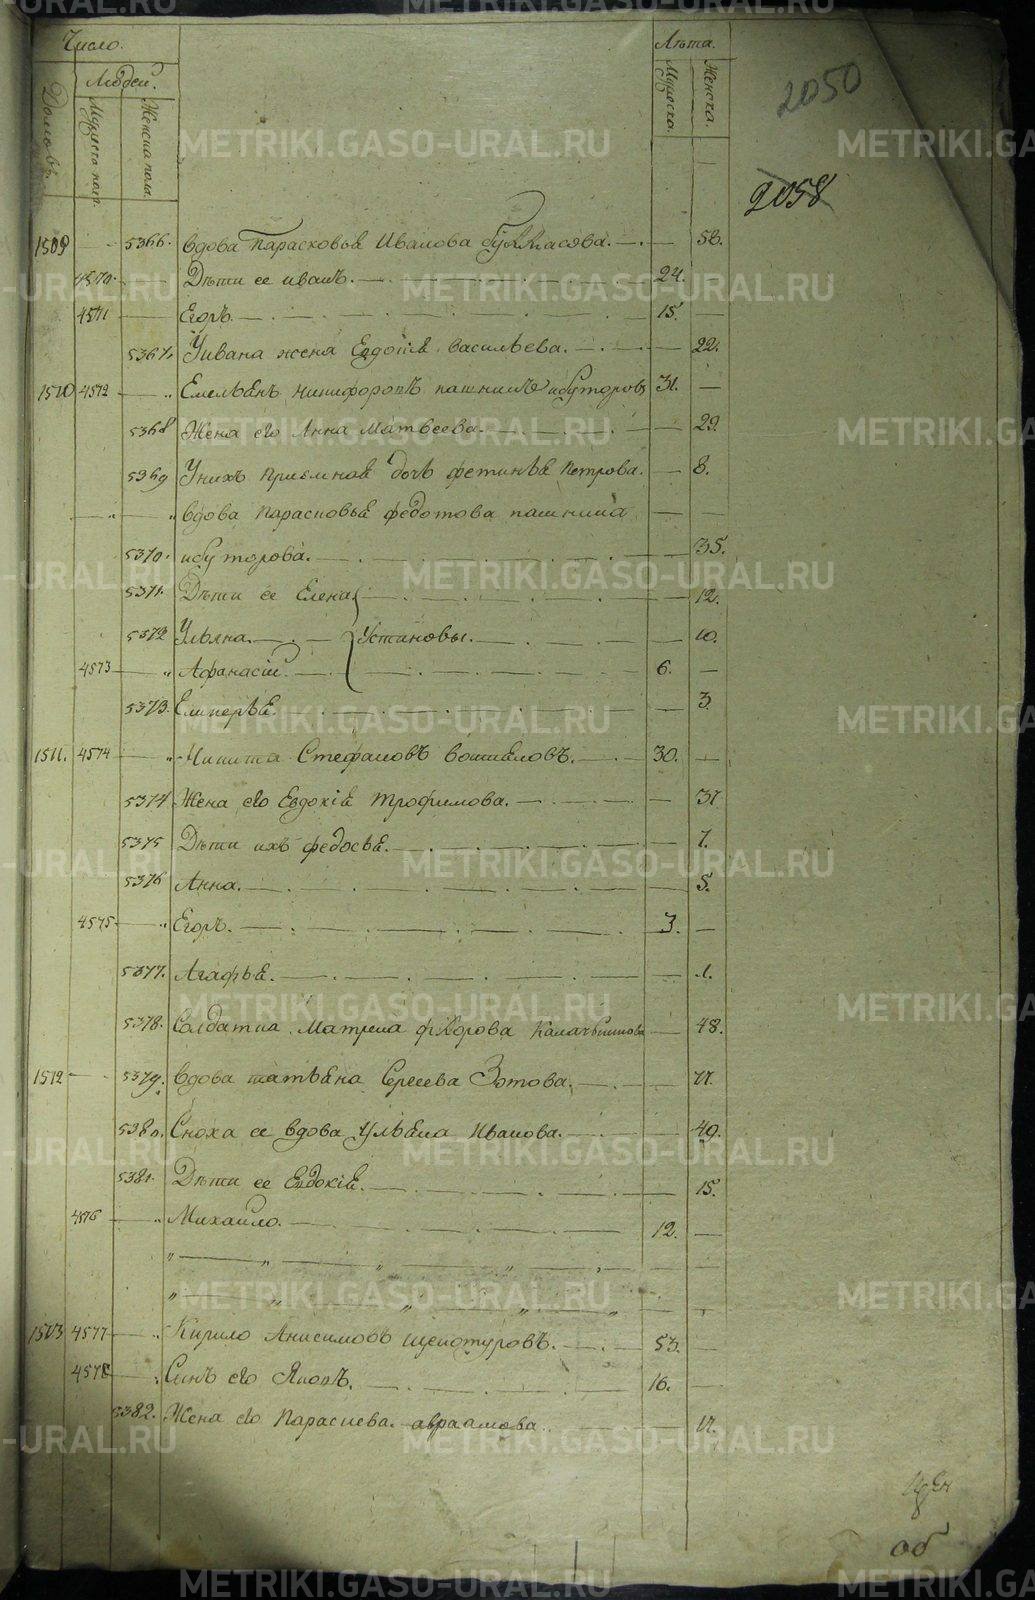 Число.
Лѣта.
Людей.
Домовъ.
Мужеска пол.
Женска пола.
Мужеска.
Женска.
2050
2058
1509 5366. вдова Парасковья Иванова 58.
4570. Дѣти ее иванъ. 24.
4571 Егоръ. 15.
5367. У ивана жена Евдотія васильева. 22.
1510 4572 Емельянъ никифоровъ пашнинъ 31.
5368 Жена его Анна Матвеева. 29.
5369 У нихъ приемная дочь фетинья петрова. 8.
вдова парасковья федотова пашнина
5370. торова. 35.
5371. Дѣти ее Елена 12.
5372 Ульяна. Устиновы. 10.
4573 Афанасій 6.
5373. 3.
1511. 4574 Никита Стефановъ 30.
5374 Жена его Евдокія трофимова. 31
5375 Дѣти ихъ федосья. 7.
5376 Анна. 5.
4575 Егоръ. 3.
5377. Агафья. 1.
5378. Солдатка Матрена 48.
1512 5379. вдова татьяна Сергеева Зотова.
5380. Сноха ее вдова Ульяна Иванова. 49.
5381. Дѣти ее Евдокія. 15.
4576 Михайло. 12.
1513 4577 Кирило Анисимовъ щепотуровъ. 53.
4578 Сынъ его Яковъ. 16.
5382. Жена его Парасцева авраамова. 17.
об
METRIKI.GASO-URAL.RU